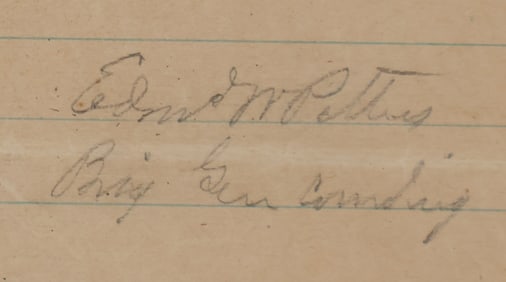 Edmd W Pettus
Brig Gen Comdig